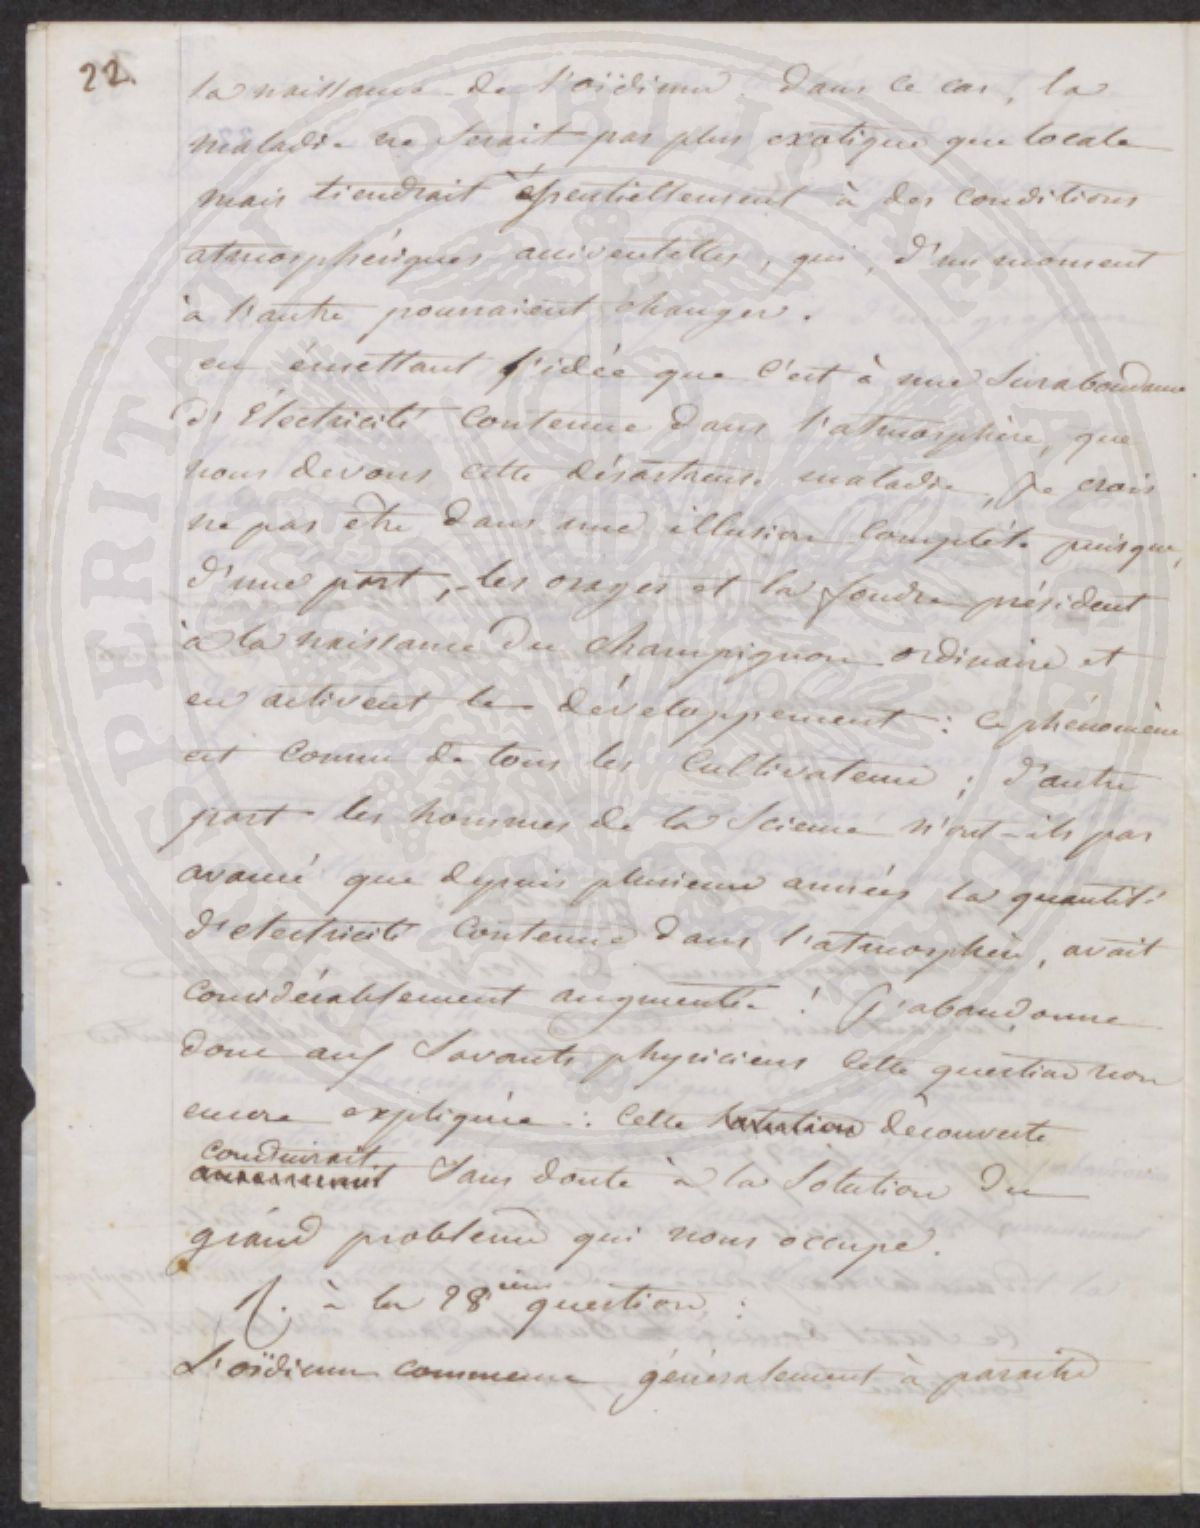 22.
la naissance de l'oïdium. Dans ce cas, la
maladie ne serait pas plus exotique que locale
mais tiendrait essentiellement à des conditions
atmosphériques accidentelles, qui, d'un moment
à l'autre pourraient changer.
en émettant l'idée que c'est à une surabondance
d'Électricité contenue dans l'atmosphère, que
nous devons cette désastreuse maladie, je crois
ne pas être dans une illusion complète puisque,
d'une part, les orages et la foudre président
à la naissance du champignon ordinaire et
en activent le développement : ce phénomène
est connu de tous les cultivateurs ; d'autre
part les hommes de la science n'ont-ils pas
avancé que depuis plusieurs années la quantité
d'électricité contenue dans l'atmosphère, avait
considérablement augmenté ! J'abandonne
donc aux savants physiciens cette question non
encore expliquée : cette découverte
conduirait
sans doute à la solution du
grand problème qui nous occupe.
R. à la 28ième question :
L'oïdium commence généralement à paraître
SPERITATI PVBLICAE